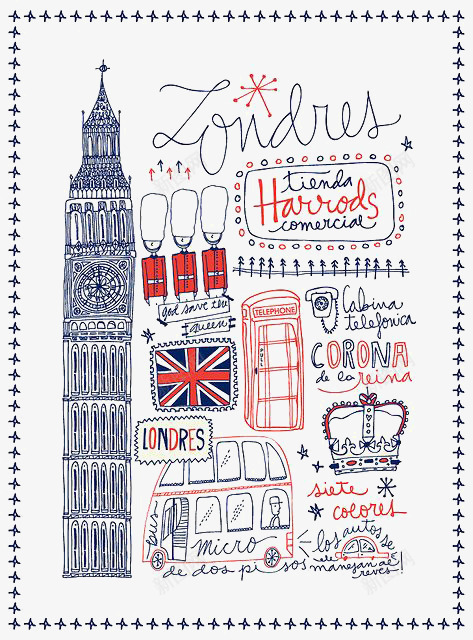 Londres
tienda
Harrods
comercial
god save the
queen
TELEPHONE
PULL
Cabina
telefonica
CORONA
de la reina
LONDRES
siete
colores
bus
micro
de dos pisos
los autos
se
manejan al
reves!